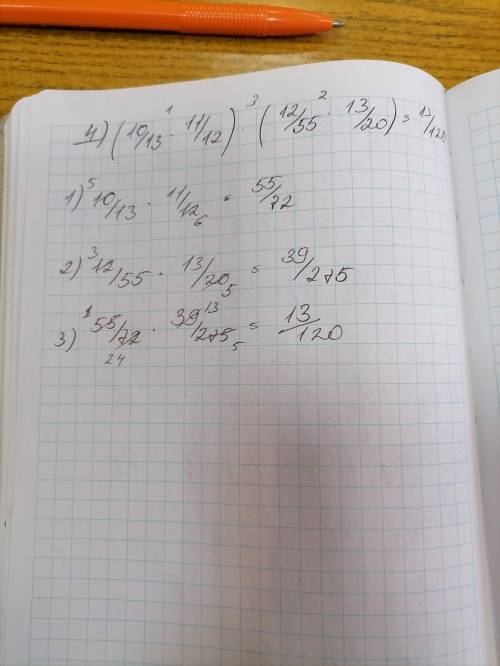 4) (10/13 · 11/12) · (12/55 · 13/20) = 13/120
1) 10/13 · 11/12 6 = 55/72
2) 3 12/55 · 13/20 5 = 39/275
3) 1 55/72 24 · 39 13/275 5 = 13/120